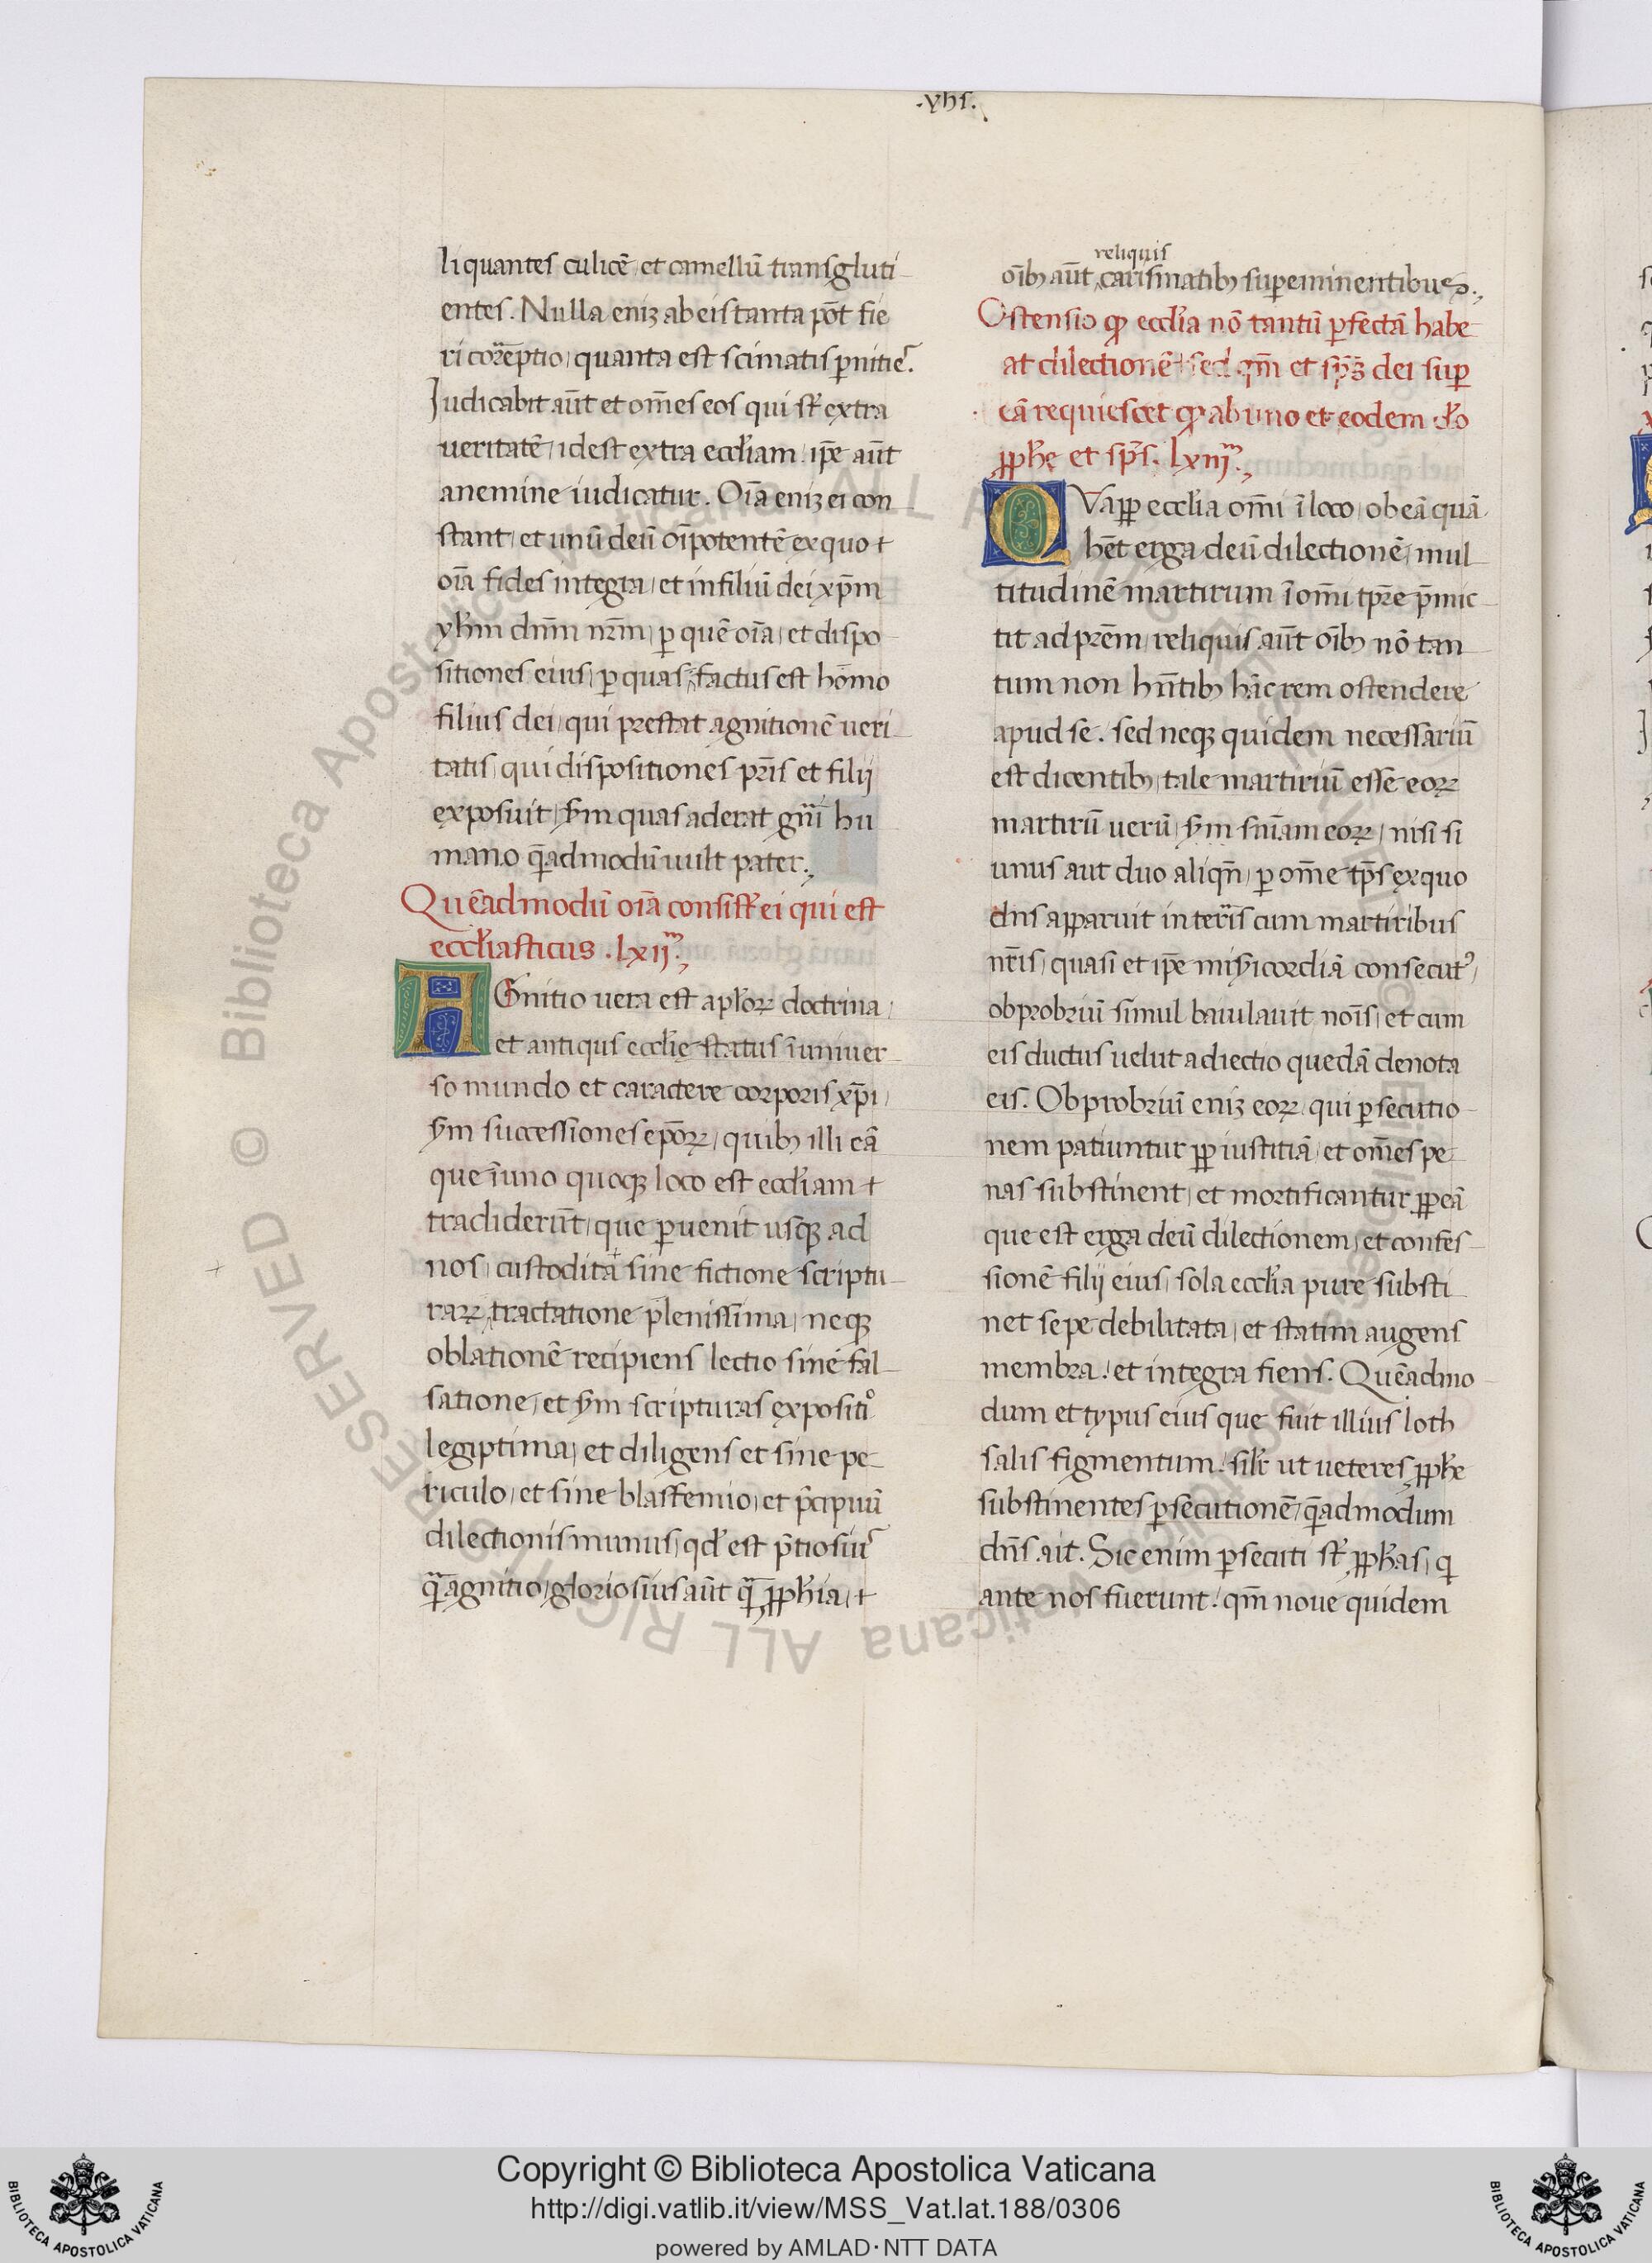 .yhs.
liquantes culicē et camellū transgluti
entes. Nulla eniȝ ab eis tanta pōt fie
ri correptio, quanta est scimatis ꝑnities.
Iudicabit aūt et om̄es eos qui sūt extra
ueritatē, idest extra eccl̄iam. ip̄e aūt
a nemine iudicatur. Oīa eniȝ ei con
stant, et unū deū oīpotentē ex quo t
oīa fides integra, et in filiū dei xp̄m
yh̄m dnm̄ nrm̄, ꝑ quē oīa, et dispo
sitiones eius, ꝑ quas factus est homo
filius dei, qui prestat agnitionē ueri
tatis, qui dispositiones pr̄is et filij
exposuit, sm̄ quas aderat gn̄i hu
mano q̄admodū uult pater.
Quēadmodū oīa consist ei qui est
eccl̄iasticus. lxijm.
AGnitio uera est apl̄oꝝ doctrina,
et antiqus eccl̄ie status ī uniuer
so mundo et caractere corporis xp̄i,
sm̄ successiones ep̄oꝝ, quibꝫ illi eā
que ī uno quoqꝫ loco est eccl̄iam t
tradiderūt, que ꝑuenit usqꝫ ad
nos, custodita sine fictione scriptu
raꝝ tractatione plenissima, neqꝫ
oblationē recipiens lectio sine fal
satione, et sm̄ scripturas expositio
legiptima, et diligens et sine pe
riculo, et sine blasfemio, et p̄cipuū
dilectionis munus, qd̄ est p̄tiosius
q̄ agnitio, gloriosius aūt q̄ ꝓph̄ia, t
reliquis
oībꝫ aūt carismatibꝫ supeminentibus.
Ostensio ꝙ eccl̄ia nō tantū ꝑfectā habe
at dilectionē, sed qm̄ et sp̄s dei suꝑ
eā requiescet ꝙ ab uno et eodem do
ꝓph̄e et sp̄s. lxiijm.
QVapp eccl̄ia om̄i ī loco, ob eā quā
hēt erga deū dilectionē, mul
titudinē martirum ī om̄i tp̄re p̄mic
tit ad prēm, reliquis aūt oībꝫ nō tan
tum non hn̄tibꝫ hāc rem ostendere
apud se. sed neqꝫ quidem necessariū
est dicentibꝫ, tale martiriū esse eoꝝ
martirū uerū, sm̄ sn̄iam eoꝝ, nisi si
unus aut duo aliqn̄, ꝑ om̄e tp̄s ex quo
dn̄s apparuit in terris cum martiribus
nr̄is, quasi et ip̄e mīsicordiā consecut9,
obprobriū simul baiulauit nōis, et cum
eis ductus uelut adiectio quedā denota
eis. Obprobriū eniȝ eoꝝ, qui ꝑsecutio
nem patiuntur pp iustitiā, et om̄es pe
nas substinent, et mortificantur pp eā
que est erga deū dilectionem, et confes
sionē filij eius, sola eccl̄ia pure substi
net sepe debilitata, et statim augens
membra. et integra fiens. Quēadmo
dum et typus eius que fuit illius loth
salis figmentum. sil̄r ut ueteres ꝓph̄e
substinentes ꝑsecutionē, q̄admodum
dn̄s ait. Sic enim ꝑsecuti sūt ꝓph̄as, q
ante nos fuerunt. qm̄ noue quidem
Copyright © Biblioteca Apostolica Vaticana
http://digi.vatlib.it/view/MSS_Vat.lat.188/0306
powered by AMLAD·NTT DATA